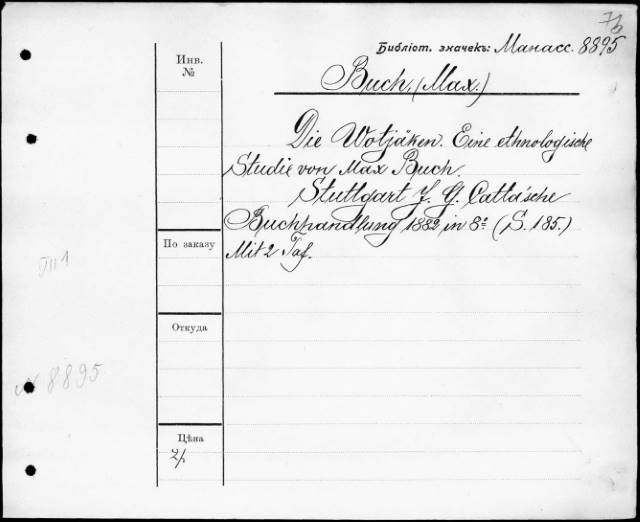 7b
Библіот. значекъ: Манасс. 8895
Инв.
№
Buch, (Max.)
Die Wotjäken. Eine ethnologische
Studie von Max Buch.
Stuttgart J. G. Cotta'sche
Buchhandlung 1882 in 8º (S. 185.)
Mit 2 Taf.
По заказу
VII 1
Откуда
№ 8895
Цѣна
2/.